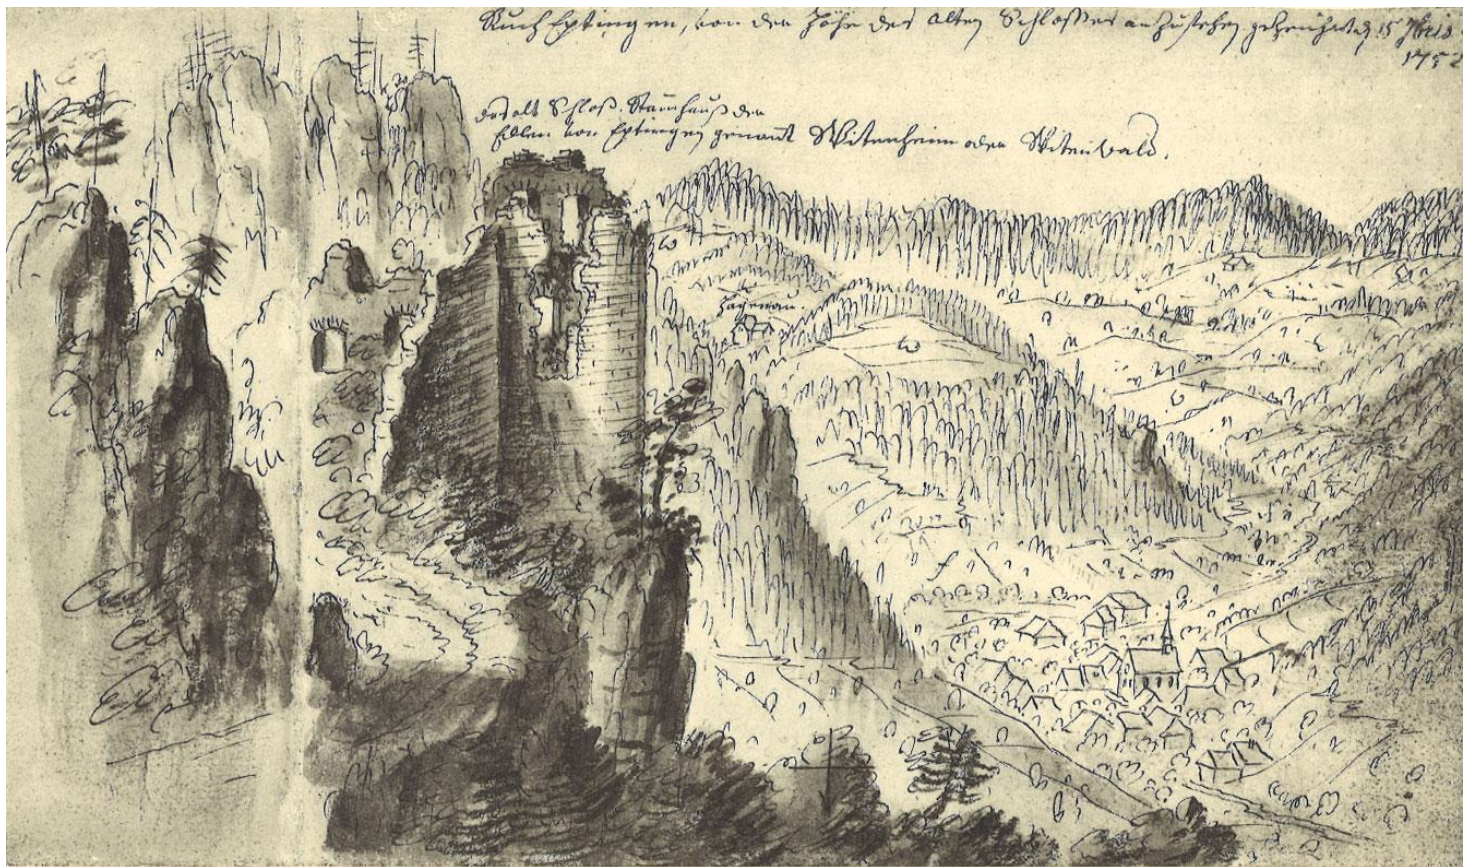 Ruch Eptingen, von der Höhe des alten Schlosses anzusehen gezeichnet d. 15 7bris
1752
das alt Schloß. Stammhauß der
Edlen von Eptingen genant Witenheim oder Witenwald.
Hagenau